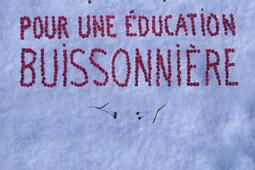 POUR UNE ÉDUCATION
BUISSONNIÈRE